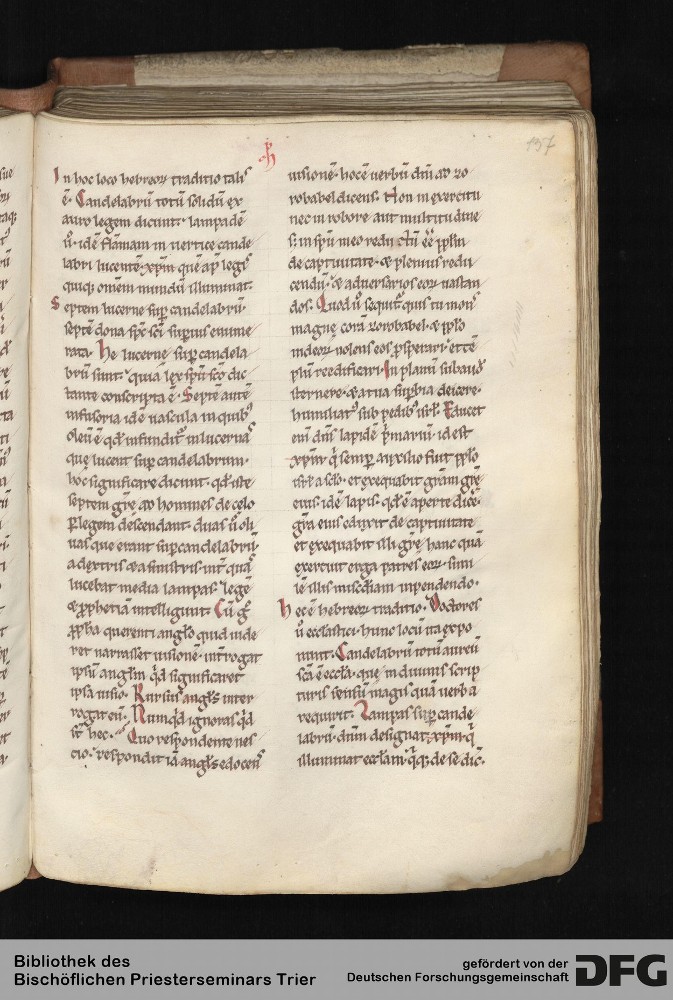 157
In hoc loco hebreoꝝ traditio talis
ē. Candelabrū totū solidū ex
auro legem dicunt. lampadē
ū idē flāmam in uertice cande
labri lucentē. xp̄m quē ap̄ legis
quiq; omēm mundū illuminat.
Septem lucerne suꝑ candelabrū.
septē dona sp̄c sc̄i suꝑius enume
rata. he lucerne suꝑ candela
brū sunt. quia lex sp̄u sc̄o dic
tante conscripta ē. Septē autē
infusoria idē uascula in quibꝰ
oleū ē qd̄ infundit᷑ in lucernas
que lucent suꝑ candelabrum.
hoc significare dicunt. qd̄ iste
septem gr̄e ad homines de celo
ꝑ legem descendant. duas ū oli
uas que erant suꝑ candelabrū
a dextris & a sinistris. int̄ quas
lucebat media lampas. legē
& ꝓphetiā intelligunt. Cū g̊
ꝓph̄a querenti angl̄o quid uide
ret narrasset uisionē. int̄rogat
ipsū angl̄m qͥd significaret
ipsa uisio. Rursus angl̄s inter
rogat eū. Nūqͥd ignoras qͥd
st̄ hec. Quo respondente nes
cio. respondit iā angl̄s edocens
uisionē. hoc ē uerbū dn̄i ad zo
robabel dicens. Non in exercitu
nec in robore aut multitudine
s; in sp̄u meo redu ēē pp̄lm
de captiuitate. & plenius redu
cendū. & aduersarios eoꝝ uastan
dos. Quod ū sequit᷑. quis tu mons
magne corā zorobabel. & pp̄lo
iudeoꝝ nolens eos ꝓsperari. et tē
plū reedificari. In planū
sternere. & a tua suꝑbia deicere.
humiliatꝰ sub pedibꝰ isr̄l. Educet
eni dn̄s lapidē pͥmariū. id est
xp̄m qͥ semꝑ auxilio fuit pp̄lo
isr̄l a sc̄lo. et exequabit gr̄am gr̄e
eius. idē lapis. qd̄ ē aperte dice.
gr̄a eius eduxit de captiuitate
et exequabit illi gr̄e hanc quā
exercuit erga patres eoꝝ. simi
lē illis mis̄c̄diam inpendendo.
hec ē hebreoꝝ traditio. Doctores
ū ecclesiastici. hunc locū ita expo
nunt. Candelabrū totū aureū
sc̄a ē eccl̄a. que in diuinis scrip
turis sensū magis quā uerba
requirit. Lampas suꝑ cande
labrū. dn̄m designat xp̄m. qͥ
illuminat eccl̄am. qͥq; de se dic̄.
Bibliothek des
Bischöflichen Priesterseminars Trier
gefördert von der
Deutschen Forschungsgemeinschaft
DFG